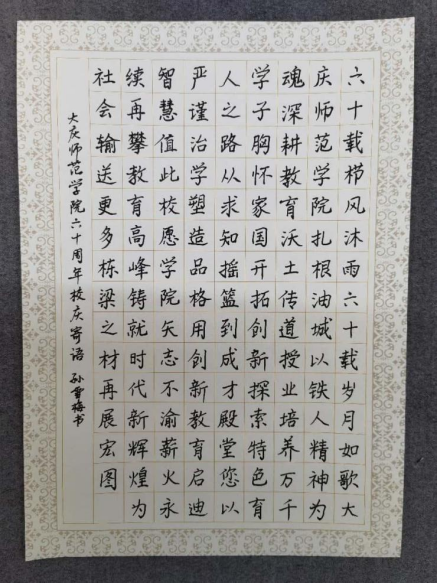 六十载栉风沐雨六十载岁月如歌大
庆师范学院扎根油城以铁人精神为
魂深耕教育沃土传道授业培养万千
学子胸怀家国开拓创新探索特色育
人之路从求知摇篮到成才殿堂您以
严谨治学塑造品格用创新教育启迪
智慧值此校愿学院矢志不渝薪火永
续再攀教育高峰铸就时代新辉煌为
社会输送更多栋梁之材再展宏图
大庆师范学院六十周年校庆寄语 孙雪梅书